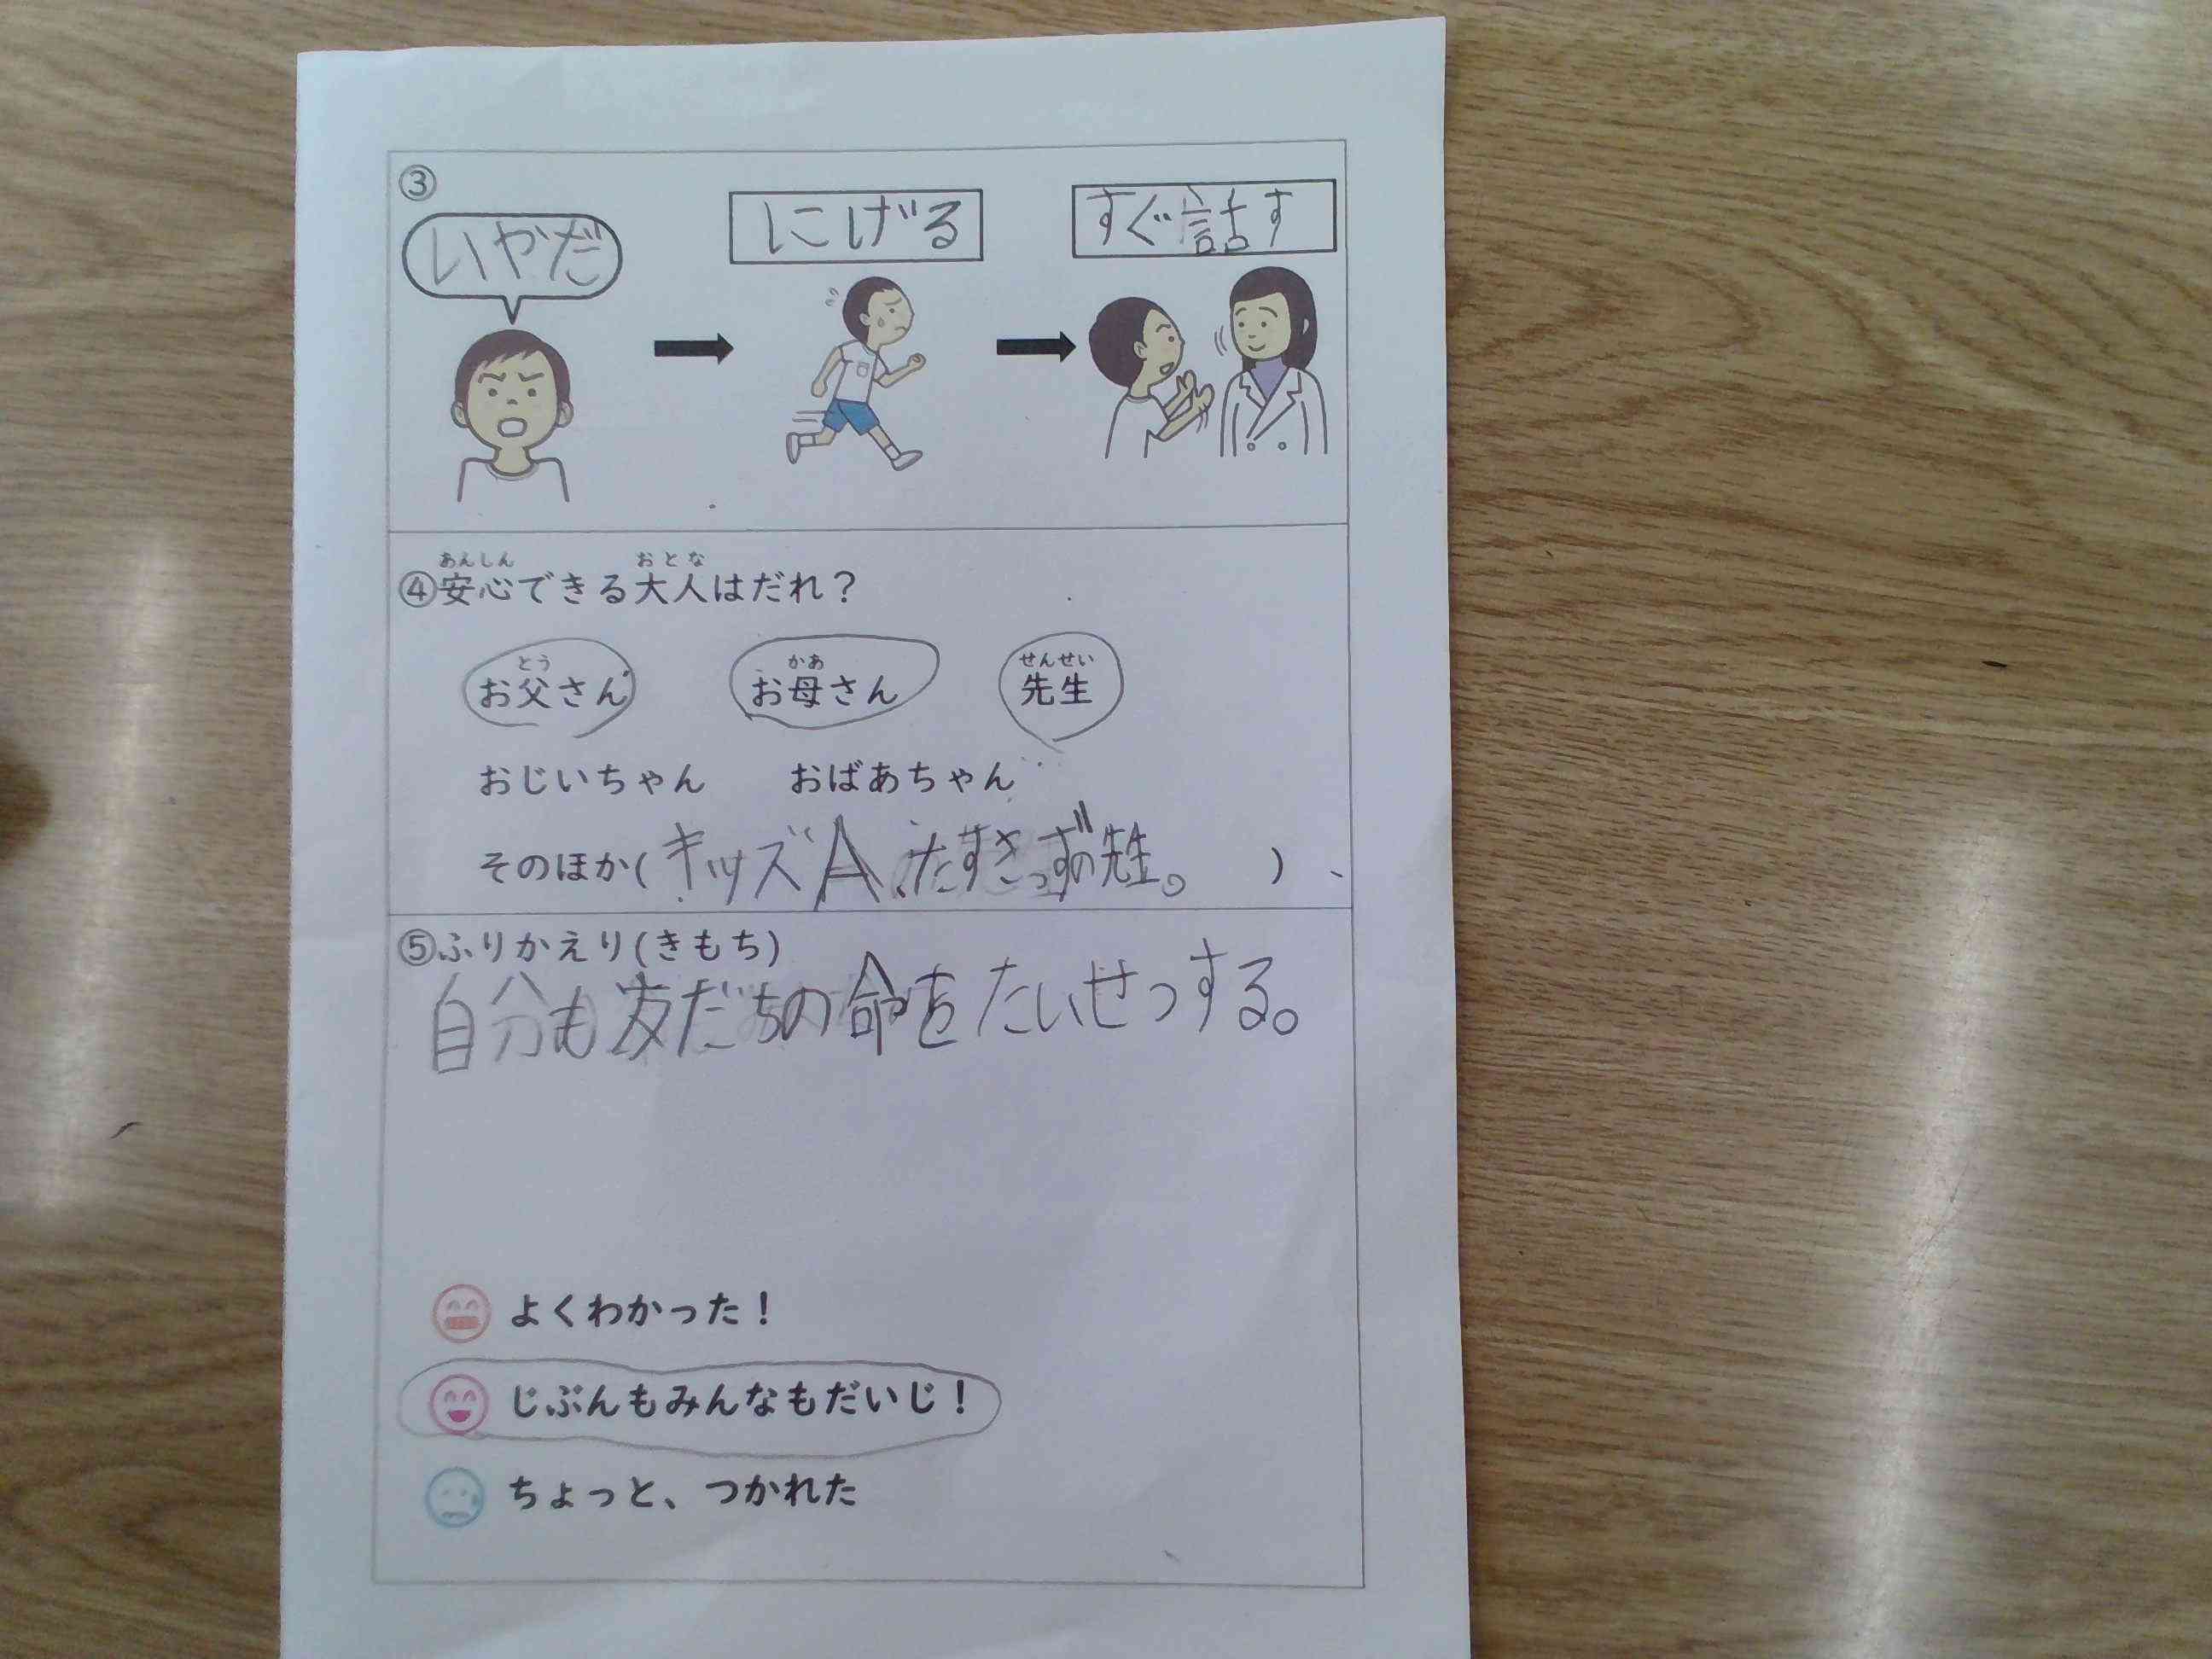 ③
いやだ
にげる
すぐ話す
あんしん おとな
④安心できる大人はだれ？
とう かあ せんせい
お父さん お母さん 先生
おじいちゃん おばあちゃん
そのほか(キッズA、たすきっずの先生。)
⑤ふりかえり(きもち)
自分も友だちの命をたいせつする。
よくわかった！
じぶんもみんなもだいじ！
ちょっと、つかれた